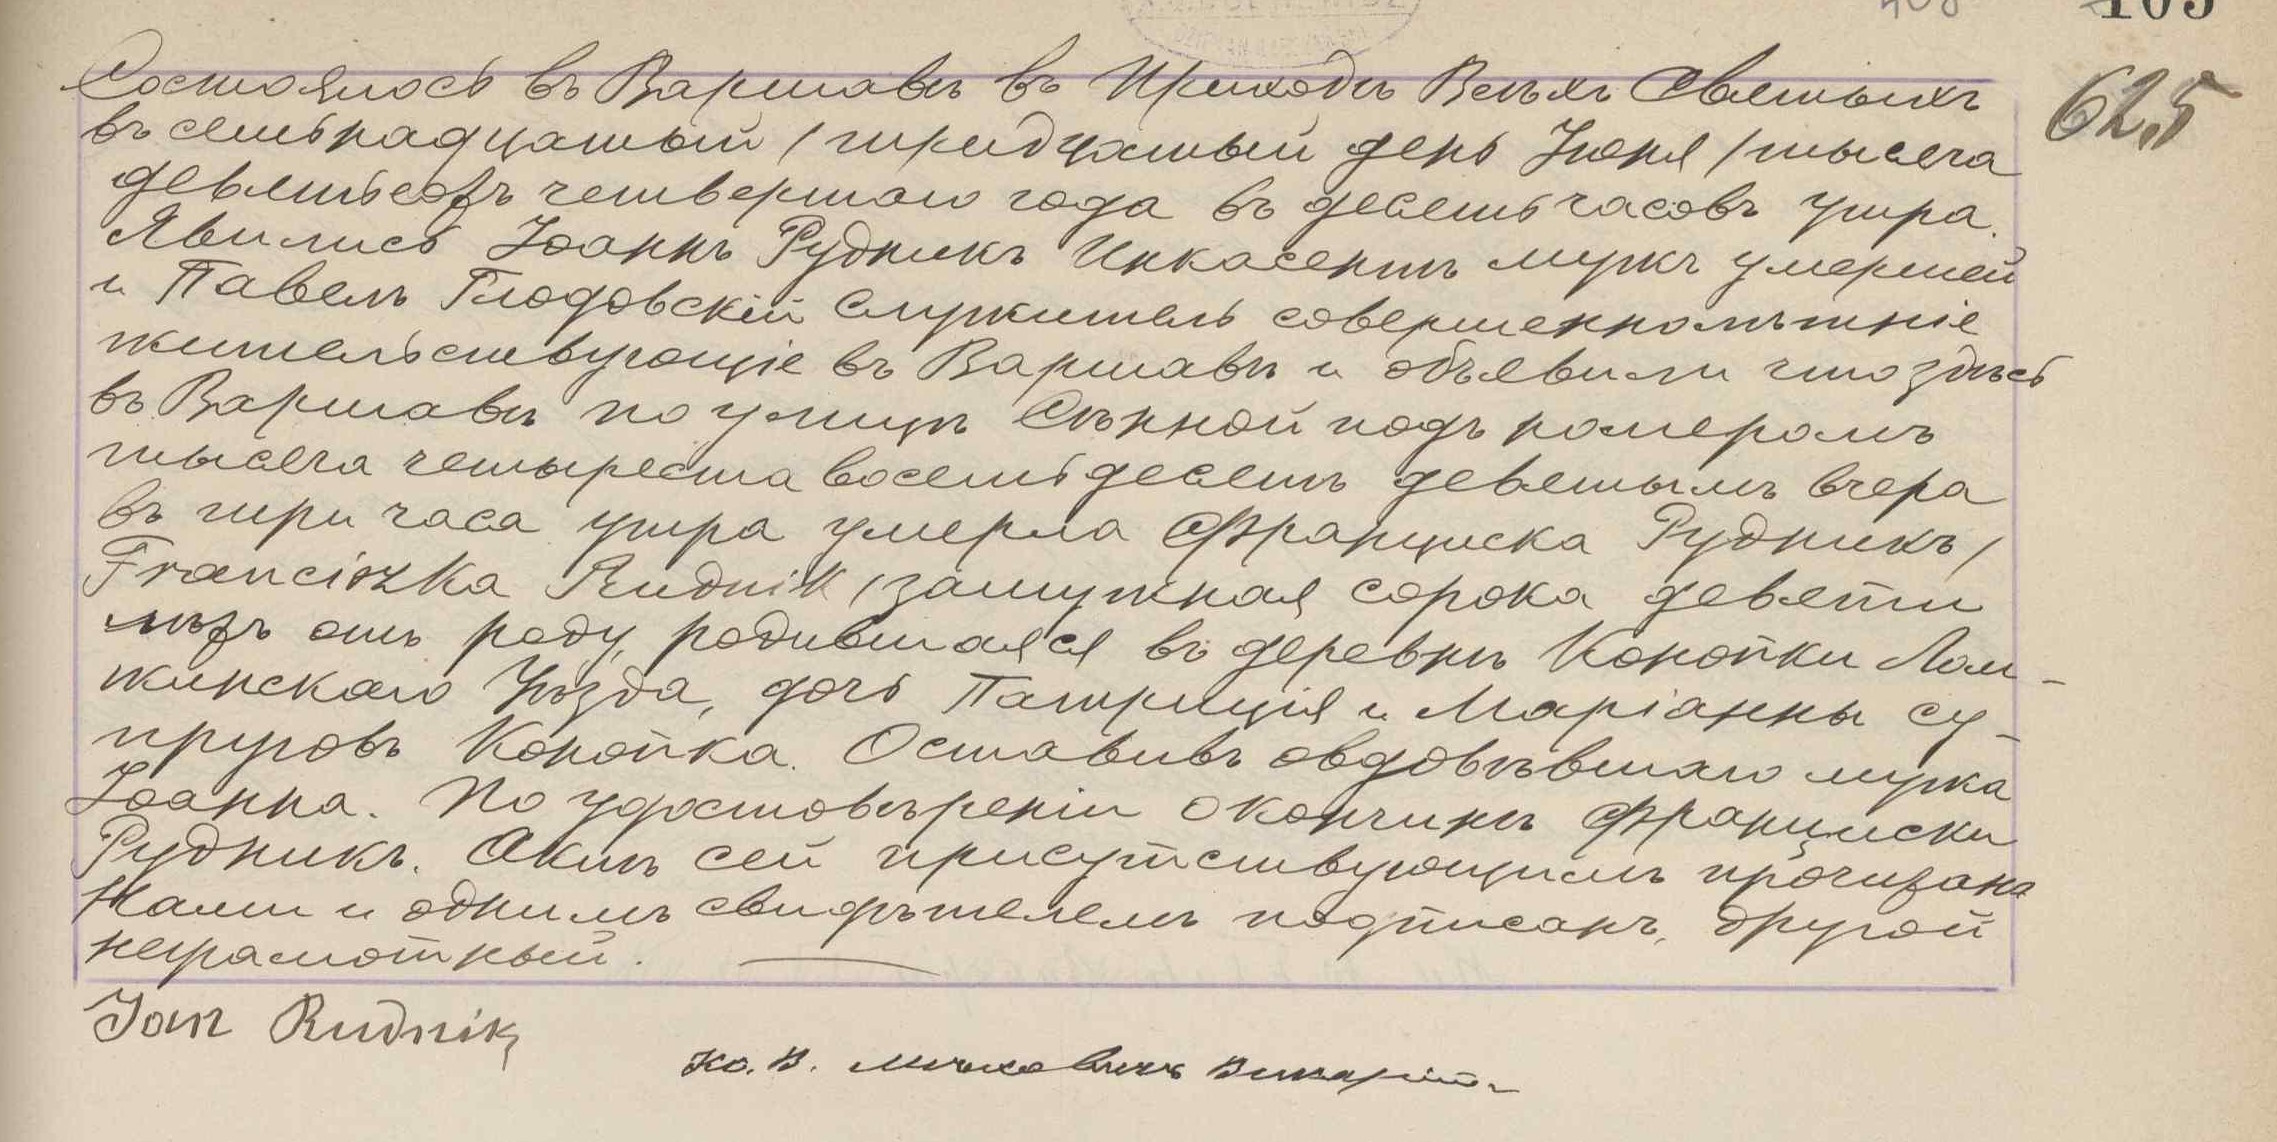 105
625
Состоялось въ Варшавѣ въ Приходѣ Всѣхъ Святыхъ
въ семьнадцатый / тридцатый день Іюня / тысяча
девятьсотъ четвертаго года въ десять часовъ утра.
Явились Іоаннъ Рудникъ Инкасентъ мужъ умершей
и Павелъ Глодовскій служитель совершеннолѣтніе
жительствующіе въ Варшавѣ и объявили что здѣсь
въ Варшавѣ по улицѣ Сѣнной подъ номеромъ
тысяча четыреста восемьдесятъ девятымъ вчера
въ три часа утра умерла Франциска Рудникъ /
Franciszka Rudnik / замужная сорока девяти
лѣтъ отъ роду, родившаяся въ деревнѣ Конопки Лом-
жинскаго Уѣзда, дочь Патриція и Маріанны су-
пруговъ Конопка. Оставивъ овдовѣвшаго мужа
Іоанна. По удостовѣреніи о кончинѣ Франциски
Рудникъ. Актъ сей присутствующимъ прочитанъ
Нами и однимъ свидѣтелемъ подписанъ, другой
неграмотный.
Jan Rudnik
Кс. В.